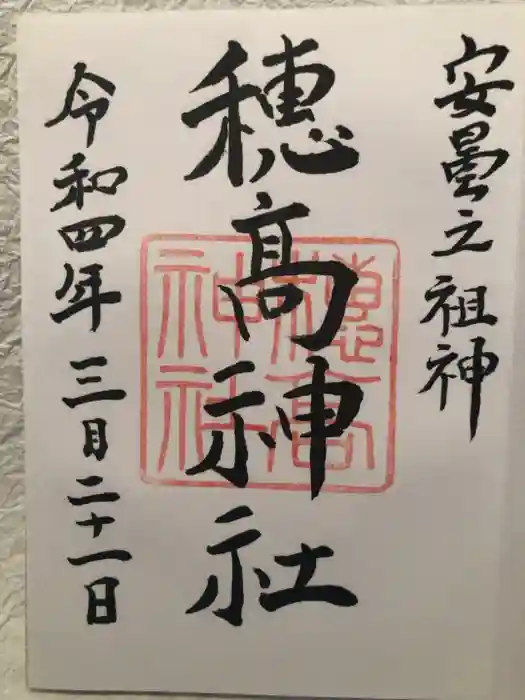 安曇之祖神
穂高神社
穂高神社
令和四年三月二十一日